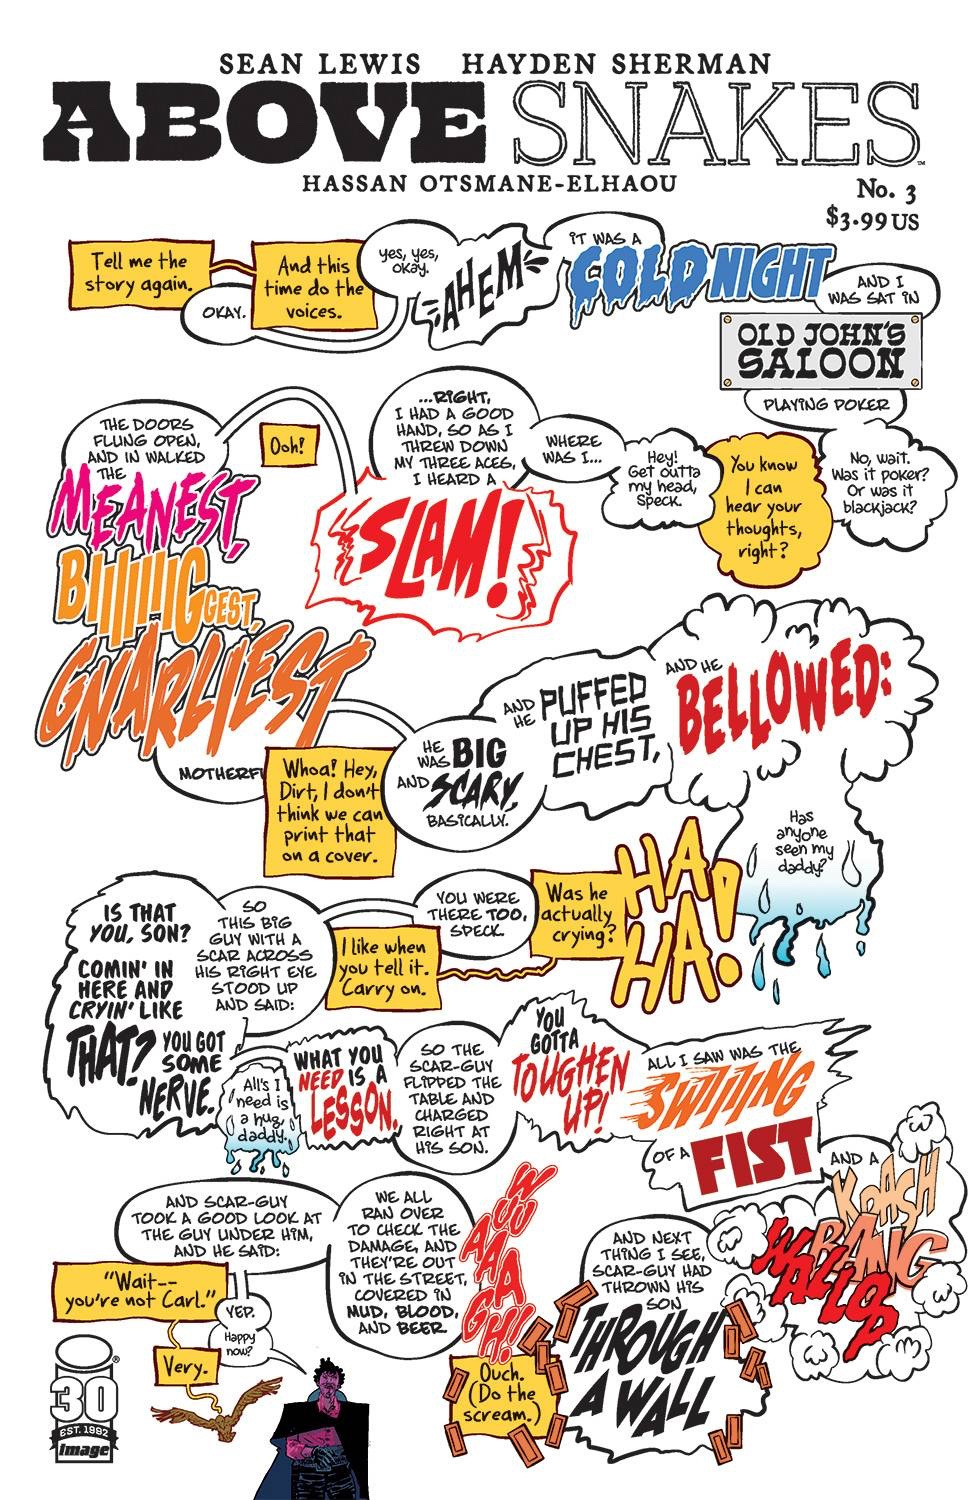 SEAN LEWIS HAYDEN SHERMAN
ABOVE SNAKES™
HASSAN OTSMANE-ELHAOU
No. 3
$3.99 US
Tell me the
story again.
OKAY.
And this
time do the
voices.
Yes, yes,
okay.
AHEM
IT WAS A
COLD NIGHT
AND I
WAS SAT IN
OLD JOHN'S
SALOON
PLAYING POKER
No, wait.
Was it poker?
Or was it
blackjack?
You know
I can
hear your
thoughts,
right?
Hey!
Get outta
my head,
Speck.
WHERE
WAS I...
...RIGHT,
I HAD A GOOD
HAND, SO AS I
THREW DOWN
MY THREE ACES,
I HEARD A
SLAM!
Ooh!
THE DOORS
FLUNG OPEN,
AND IN WALKED
THE
MEANEST,
BIIIIIIIGGEST,
GNARLIEST
MOTHERFU
Whoa! Hey,
Dirt, I don't
think we can
print that
on a cover.
HE
WAS BIG
AND SCARY,
BASICALLY.
AND
HE PUFFED
UP HIS
CHEST,
AND HE
BELLOWED:
Has
anyone
seen my
daddy?
HA
HA!
Was he
actually
crying?
YOU WERE
THERE TOO,
SPECK.
I like when
you tell it.
Carry on.
SO
THIS BIG
GUY WITH A
SCAR ACROSS
HIS RIGHT EYE
STOOD UP
AND SAID:
IS THAT
YOU, SON?
COMIN' IN
HERE AND
CRYIN' LIKE
THAT? YOU GOT
SOME
NERVE.
All's I
need is
a hug
daddy.
WHAT YOU
NEED IS A
LESSON.
SO THE
SCAR-GUY
FLIPPED THE
TABLE AND
CHARGED
RIGHT AT
HIS SON.
YOU
GOTTA
TOUGHEN
UP!
ALL I SAW WAS THE
SWIIIING
OF A FIST
AND A
KRASH
BANG
WALLOP
AND NEXT
THING I SEE,
SCAR-GUY HAD
THROWN HIS
SON
THROUGH
A WALL
Ouch.
(Do the
scream.)
WUUU
AAAAGH!!
WE ALL
RAN OVER
TO CHECK THE
DAMAGE, AND
THEY'RE OUT
IN THE STREET,
COVERED IN
MUD, BLOOD,
AND BEER.
AND SCAR-GUY
TOOK A GOOD LOOK AT
THE GUY UNDER HIM,
AND HE SAID:
"Wait--
you're not Carl."
YEP.
Happy
now?
Very.
i®
30
EST. 1992
image